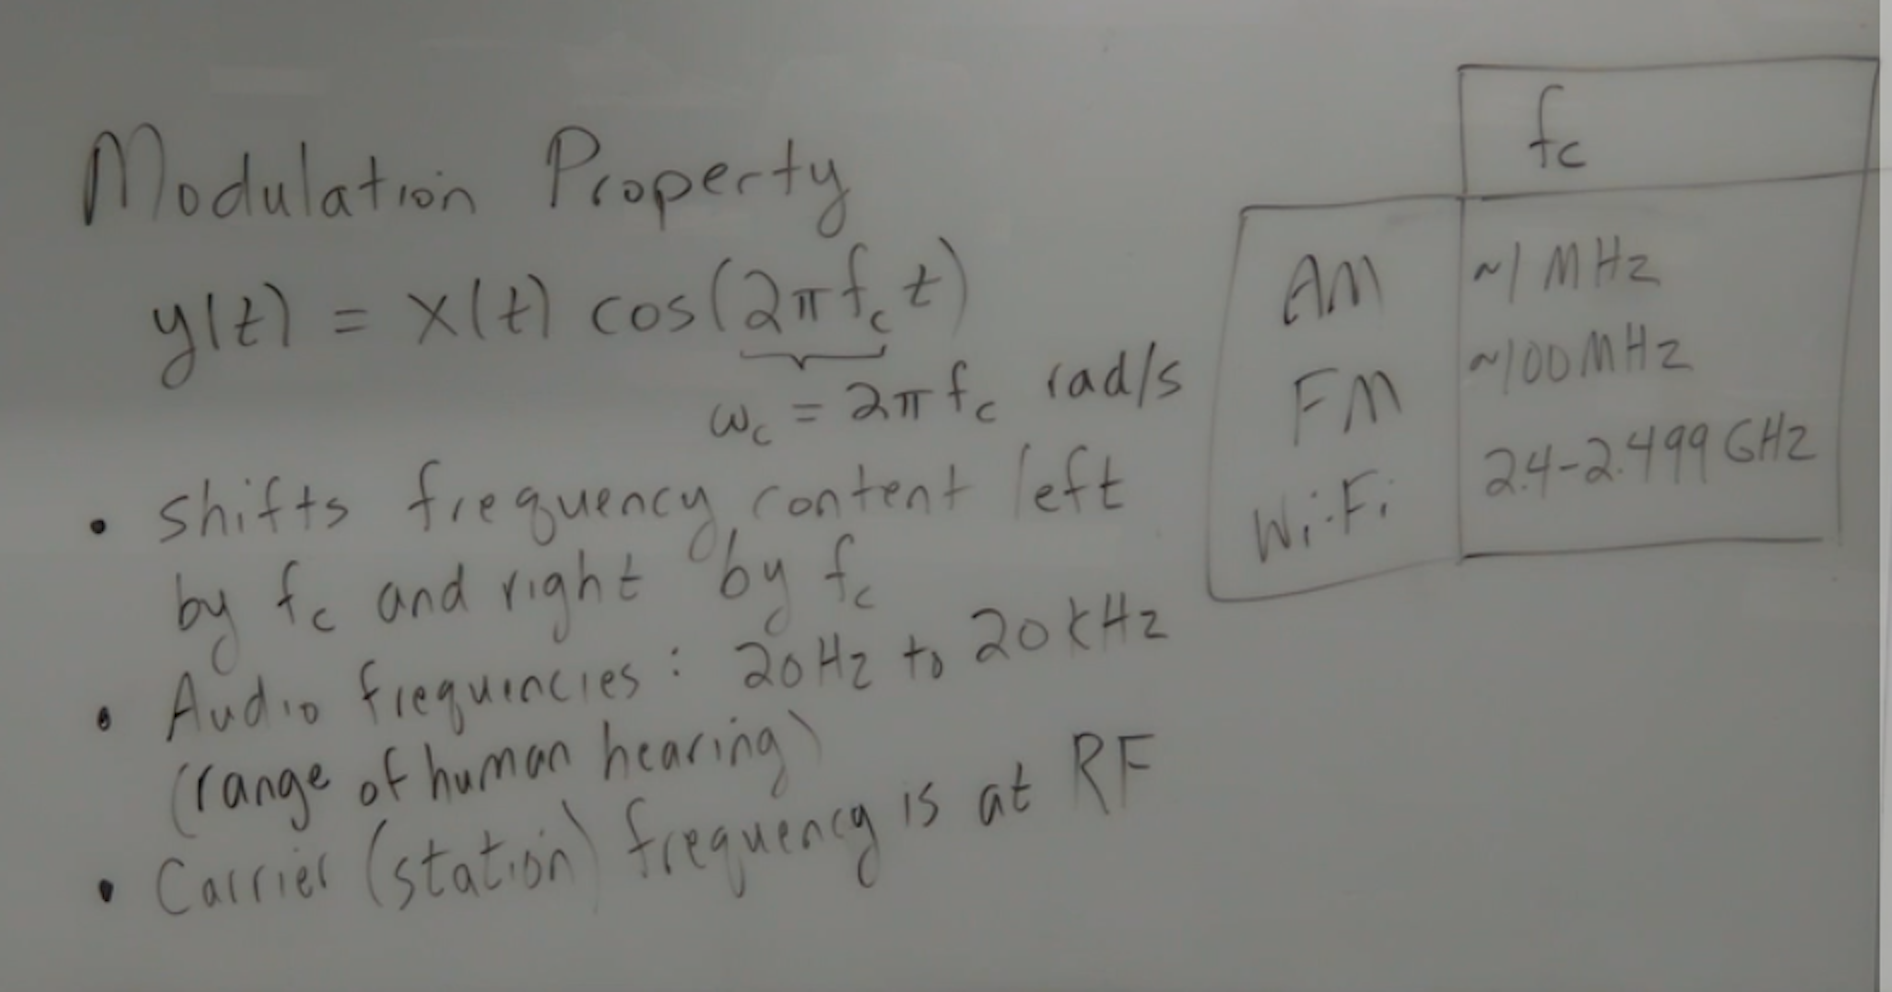 Modulation Property
y(t) = x(t) cos(2πf_c t)
ω_c = 2πf_c rad/s
• Shifts frequency content left
by f_c and right by f_c
• Audio frequencies: 20Hz to 20kHz
(range of human hearing)
• Carrier (station) frequency is at RF
f_c
AM ~1 MHz
FM ~100MHz
Wi-Fi 2.4-2.499 GHz